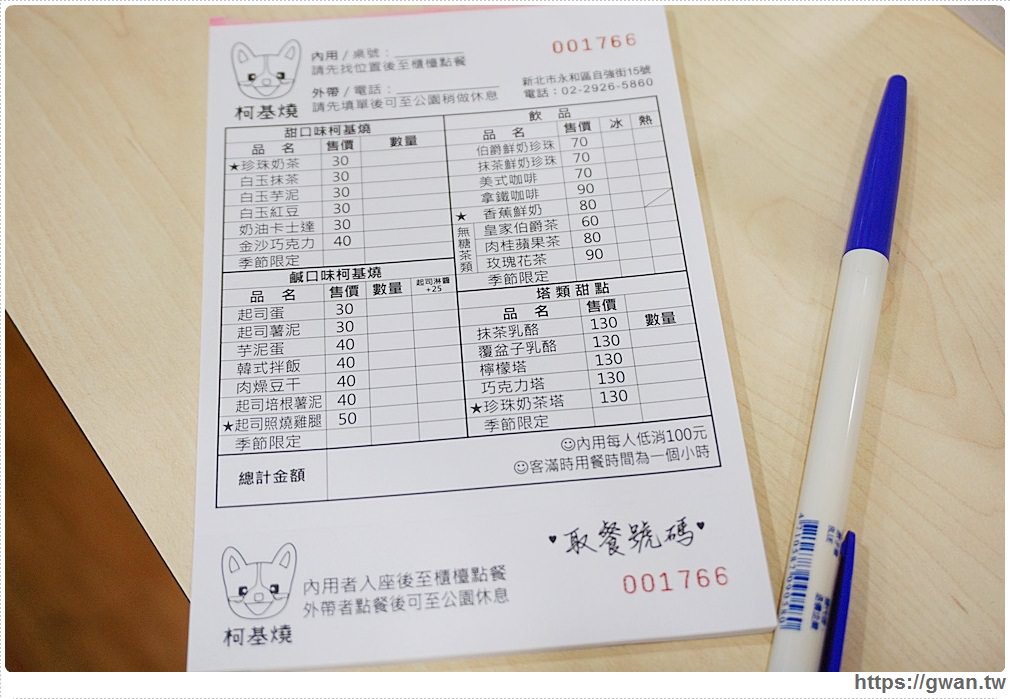 內用 / 桌號：
請先找位置後至櫃檯點餐
外帶 / 電話：
請先填單後可至公園稍做休息
001766
新北市永和區自強街15號
電話：02-2926-5860
柯基燒
甜口味柯基燒
品 名 售價 數量
★珍珠奶茶 30
白玉抹茶 30
白玉芋泥 30
白玉紅豆 30
奶油卡士達 30
金沙巧克力 40
季節限定
鹹口味柯基燒
品 名 售價 數量 起司淋醬+25
起司蛋 30
起司薯泥 30
芋泥蛋 40
韓式拌飯 40
肉燥豆干 40
起司培根薯泥 40
★起司照燒雞腿 50
季節限定
飲 品
品 名 售價 冰 熱
伯爵鮮奶珍珠 70
抹茶鮮奶珍珠 70
美式咖啡 70
拿鐵咖啡 90
★ 香蕉鮮奶 80
無糖茶類
皇家伯爵茶 60
肉桂蘋果茶 80
玫瑰花茶 90
季節限定
塔類甜點
品 名 售價 數量
抹茶乳酪 130
覆盆子乳酪 130
檸檬塔 130
巧克力塔 130
★珍珠奶茶塔 130
季節限定
總計金額
☺內用每人低消100元
☺客滿時用餐時間為一個小時
♥取餐號碼♥
001766
內用者入座後至櫃檯點餐
外帶者點餐後可至公園休息
柯基燒
https://gwan.tw